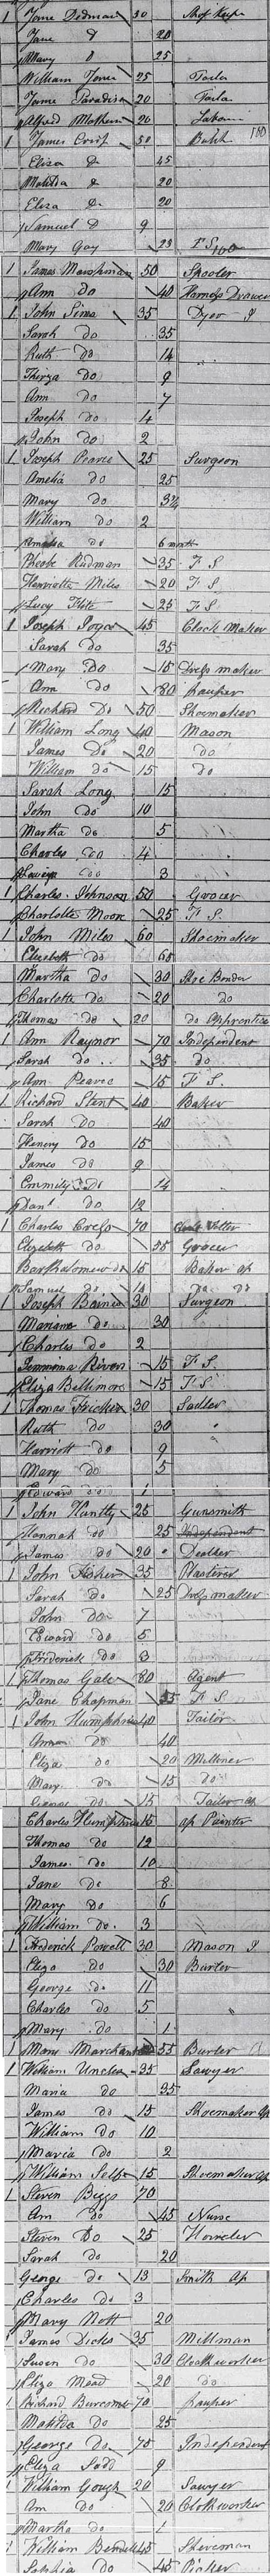 1 James Dedman 30 Shop Keeper
Jane D 20
Mary D 25
William Jones 25 Tailor
James Paradise 20 Tailor
Alfred Mathews 20 Labour
1 James Crisp 50 Butch
Eliza D 45
Matilda D 20
Eliza D 20
Samuel D 9
Mary Gay 23 F S
1 James Marshman 50 Spooler
Ann Do 40 Harness Drawer
1 John Sims 35 Dyer J
Sarah Do 35
Ruth Do 14
Thirza Do 9
Ann Do 7
Joseph Do 4
John Do 2
1 Joseph Pearce 25 Surgeon
Amelia Do 25
Mary Do 3¾
William Do 2
Amelia do 6 month
Phebe Rudman 35 F S
Henrietta Miles 20 F S
Lucy Flite 25 F S
1 Joseph Joyce 45 Clock Maker
Sarah do 35
Mary Do 15 Dress maker
Ann do 80 pauper
Richard Do 50 Shoemaker
1 William Long 40 Mason
James Do 20 do
William do 15 do
Sarah Long 15
John do 10
Martha do 5
Charles do 4
Louisa do 3
1 Charles Johnson 50 Grocer
Charlotte Moon 25 F S
1 John Miles 60 Shoemaker
Elizabeth do 65
Martha do 30 Shoe Binder
Charlotte do 20 do
Thomas do 20 do Apprentice
1 Ann Raynor 70 Independent
Sarah do 35 do
Ann Pearce 15 F S.
1 Richard Stent 40 Baker
Sarah do 40
Henery do 15
James do 9
Emmily Do 14
Danl do 12
1 Charles Crefs 70
Elizabeth do 55 Grocer
Bartholomew do 15 Baker ap
Samuel do 14 do do
1 Joseph Baines 30 Surgeon
Mariane do 30
Charles do 2
Jemima River 15 F. S.
Eliza Bellimore 15 F S
1 Thomas Fricker 30 Sadler
Ruth do 30
Harriott do 9
Mary do 5
Edward do 1
1 John Hantly 25 Gunsmith
Hannah do 25 Independent
James do 20 Dealer
1 John Fisher 35 Plasterer
Sarah do 25 Dress maker
John do 7
Edward do 5
Frederick do 3
1 Thomas Gale 80 Agent
Jane Chapman 55 F S
1 John Humphries 40 Tailor
Ann do 40
Eliza do 20 Milliner
Mary do 15 do
George do 15 Tailor ap
Charles Humphries 15 ap Painter
Thomas do 12
James do 10
Jane do 8
Mary do 6
William do 3
1 Frederick Powell 30 Mason J
Eliza do 30 Burler
George do 11
Charles do 5
Mary do 1
1 Mary Marchant 55 Burler
1 William Uncles 35 Sawyer
Maria do 35
James do 15 Shoemaker ap
William do 10
Maria do 2
William Self 15 Shoemaker ap
1 Steven Biggs 70
Ann do 45 Nurse
Steven Do 25 Howeler
Sarah do 20
George do 13 Smith ap
Charles do 3
Mary Nott 20
1 James Dicks 35 Millman
Susan do 30 Clothworker
Eliza Mead 20 do
1 Richard Burcombe 70 pauper
Matilda do 25
George Do 75 Independent
Eliza Todd 9
1 William Gough 20 Sawyer
Ann do 20 Clothworker
Martha do 1
1 William Bendell 45 Shireman
Sophia do 45 Picker